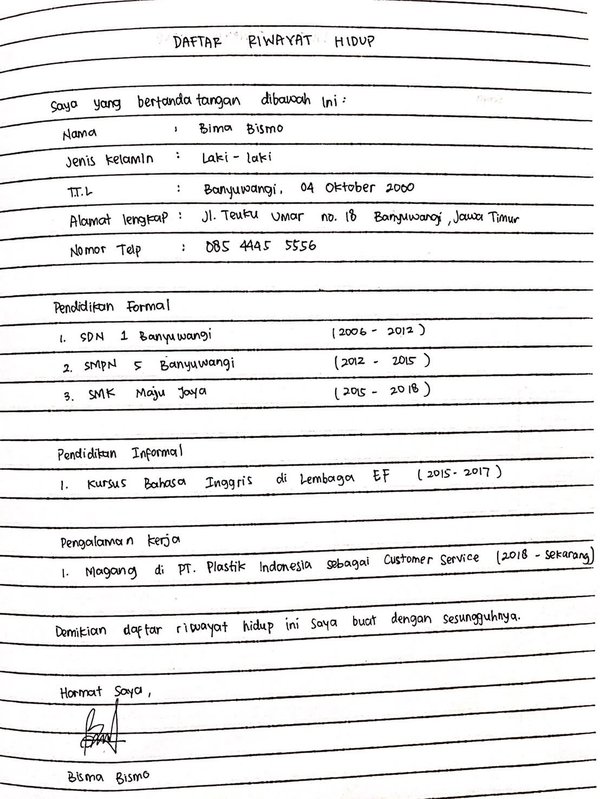 DAFTAR RIWAYAT HIDUP
Saya yang bertanda tangan dibawah ini :
Nama : Bima Bismo
Jenis Kelamin : Laki - laki
T.T.L : Banyuwangi, 04 Oktober 2000
Alamat lengkap : Jl. Teuku Umar no. 18 Banyuwangi, Jawa Timur
Nomor Telp : 085 4445 5556
Pendidikan Formal
1. SDN 1 Banyuwangi (2006 - 2012)
2. SMPN 5 Banyuwangi (2012 - 2015)
3. SMK Maju Jaya (2015 - 2018)
Pendidikan Informal
1. Kursus Bahasa Inggris di Lembaga EF (2015 - 2017)
Pengalaman Kerja
1. Magang di PT. Plastik Indonesia sebagai Customer Service (2018 - sekarang)
Demikian daftar riwayat hidup ini saya buat dengan sesungguhnya.
Hormat Saya,
Bisma Bismo